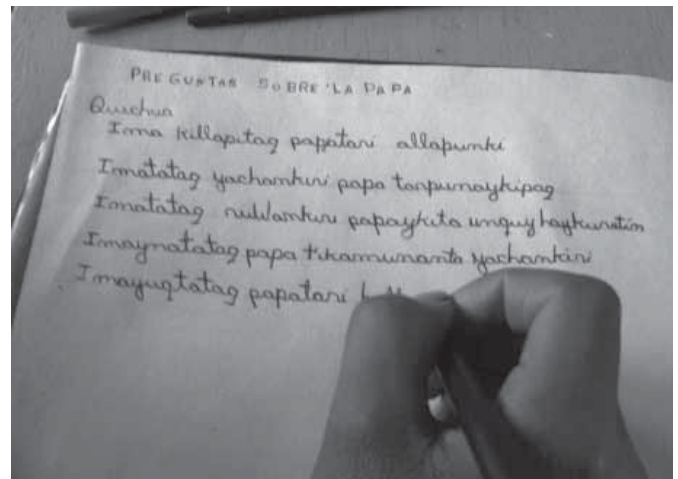 PREGUNTAS SOBRE LA PAPA
Quechua
Ima killapitag papatari allapunki
Imatatag yachankiri papa tarpunaykipag
Imatatag ruwankiri papaykita unquy haykuratin
Imaynatatag papa tikamunanta yachankiri
Imayuqtatag papatari